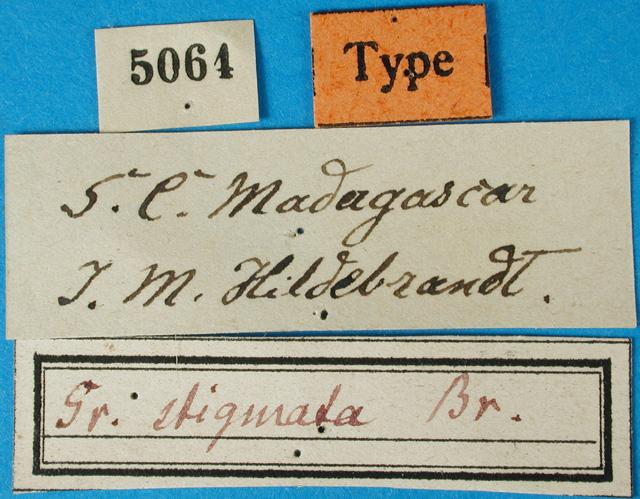 5064
Type
S. C. Madagascar
J. M. Hildebrandt.
Gr. stigmata Br.